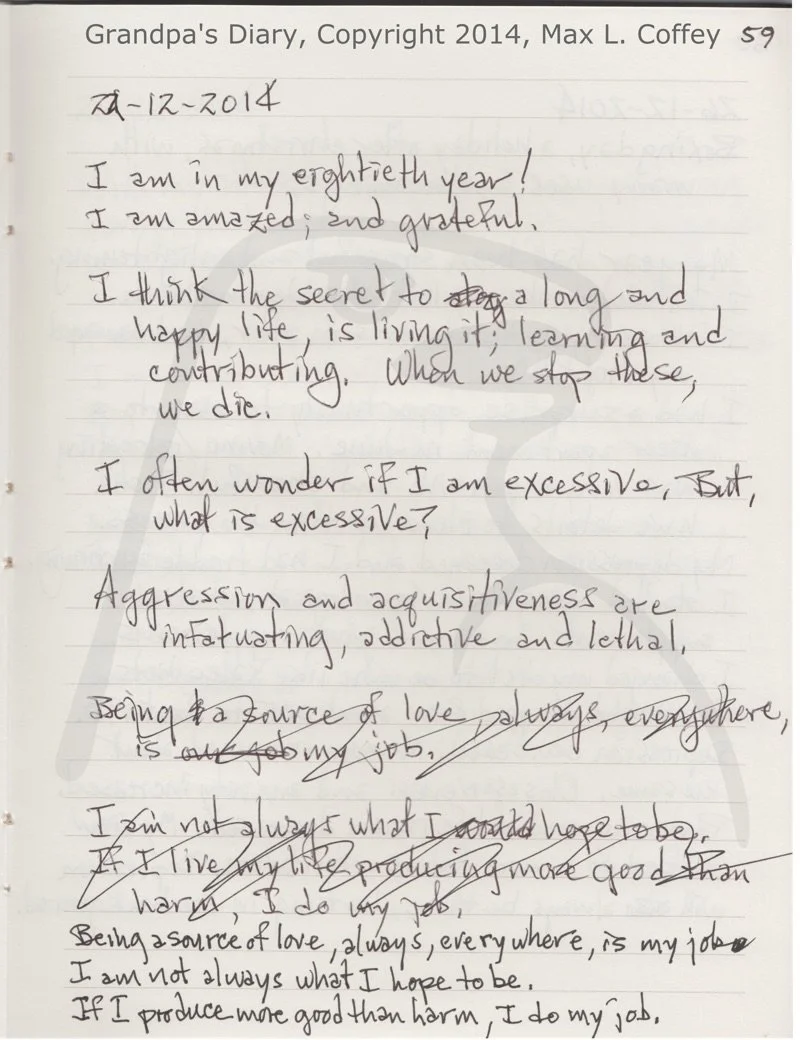 Grandpa's Diary, Copyright 2014, Max L. Coffey 59
21-12-2014
I am in my eightieth year!
I am amazed; and grateful.
I think the secret to a long and
happy life, is living it; learning and
contributing. When we stop these,
we die.
I often wonder if I am excessive, But,
what is excessive?
Aggression and acquisitiveness are
infatuating, addictive and lethal.
Being a source of love, always, everywhere,
is our job my job.
I am not always what I would hope to be.
If I live my life producing more good than
harm, I do my job.
Being a source of love, always, everywhere, is my job
I am not always what I hope to be.
If I produce more good than harm, I do my job.